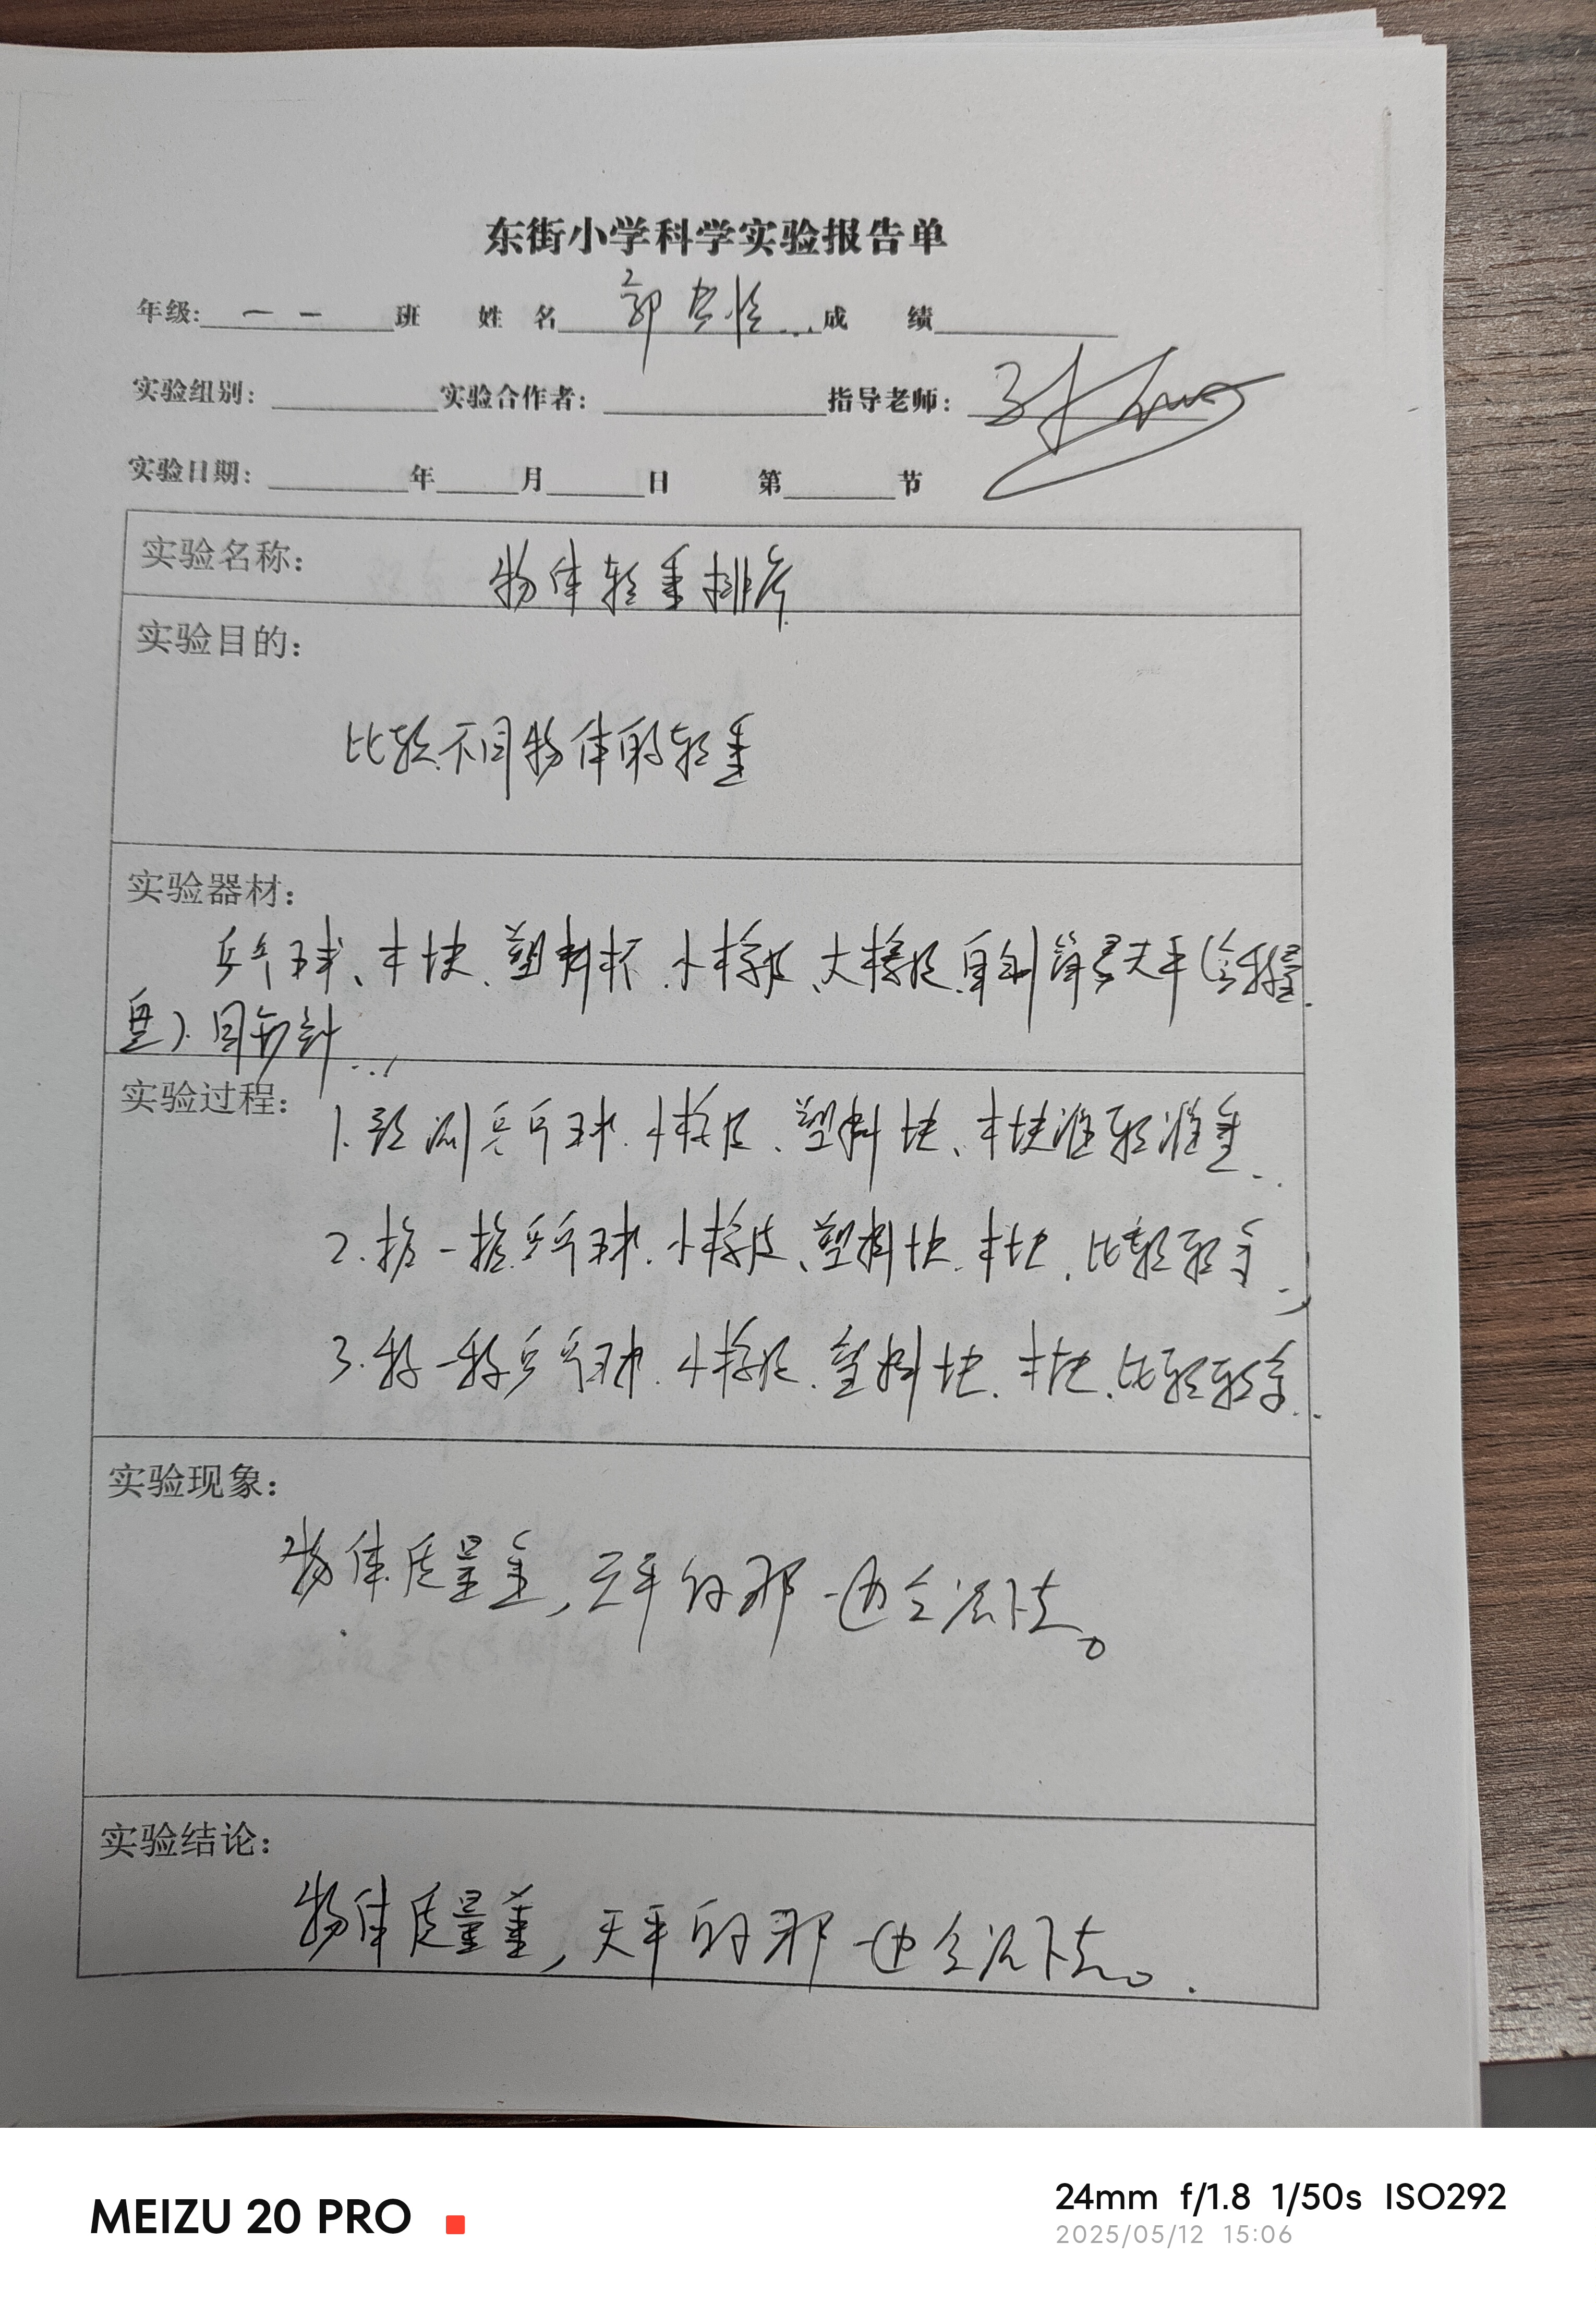 东街小学科学实验报告单
年级: 一一 班 姓名 郭 成绩
实验组别: 实验合作者: 指导老师:
实验日期: 年 月 日 第 节
实验名称: 物体轻重排序
实验目的:
比较不同物体的轻重
实验器材:
乒乓球、木块、塑料杯、小橡皮、大橡皮、自制简易天平(含称量
盘)、回形针
实验过程: 1.预测乒乓球、小橡皮、塑料块、木块谁轻谁重
2.掂一掂乒乓球、小橡皮、塑料块、木块,比较轻重
3.称一称乒乓球、小橡皮、塑料块、木块,比较轻重
实验现象:
物体质量重,天平的那一边会沉下去。
实验结论:
物体质量重,天平的那一边会沉下去。
MEIZU 20 PRO
24mm f/1.8 1/50s ISO292
2025/05/12 15:06